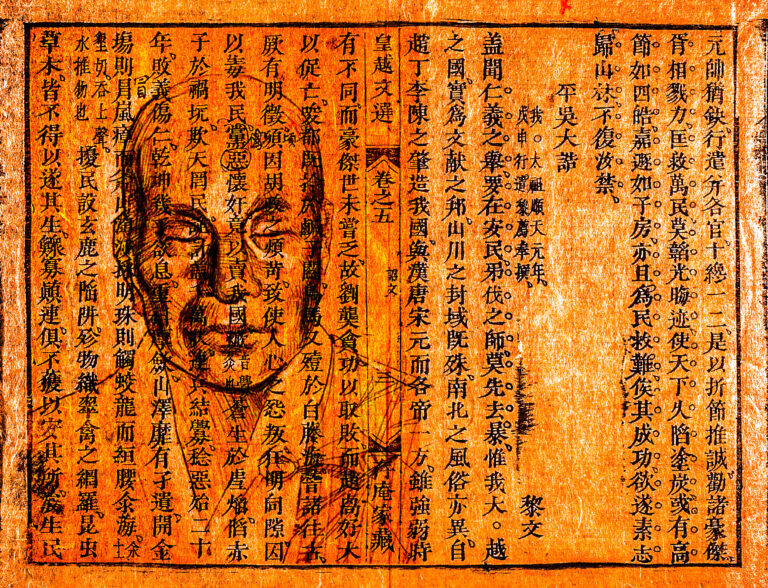 元帥猶缺行遣分各官十纔一二是以折節推誠勸諸豪傑
胥相戮力匡救萬民莫韜光晦迹使天下久陷塗炭或有高
節如四皓嘉遯如子房亦且為民救難俟其成功欲遂素志
歸山林不復汝禁
平吳大誥
我太祖順天元年
戊申行遣黎廌奉撰
黎文
蓋聞仁義之舉要在安民弔伐之師莫先去暴惟我大越
之國實為文献之邦山川之封域既殊南北之風俗亦異自
趙丁李陳之肇造我國與漢唐宋元而各帝一方雖強弱時
皇越文選 卷之五 詔文 三 庵家藏
有不同而豪傑世未嘗乏故劉龔貪功以取敗而趙卨好大
以促亡唆都既於關馬又殪於白藤海諸往古
厥有明徵頃因胡之煩苛致使人心之怨叛狂明伺隙因
以毒我民黨惡懷奸竟以賣我國生於虐焰陷赤
子於禍坑欺天罔民萬結釁稔惡殆二十
年敗義傷仁乾坤欲息山澤靡有孑遺開金
塲則冒嵐瘴而斧山明珠則觸蛟龍而絙腰汆海
擾民設玄鹿之陷阱殄物織翠禽之網羅昆虫
草木皆不得以遂其生鰥寡顛連俱不獲以安其所生民